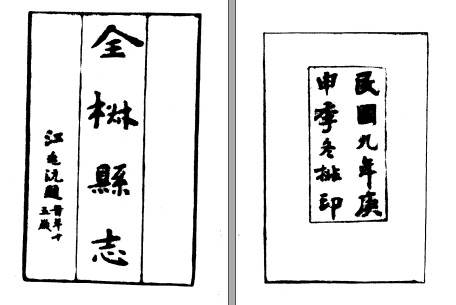 全椒縣志
江沅題
旹年十
五歲
民國九年庚
申季冬排印